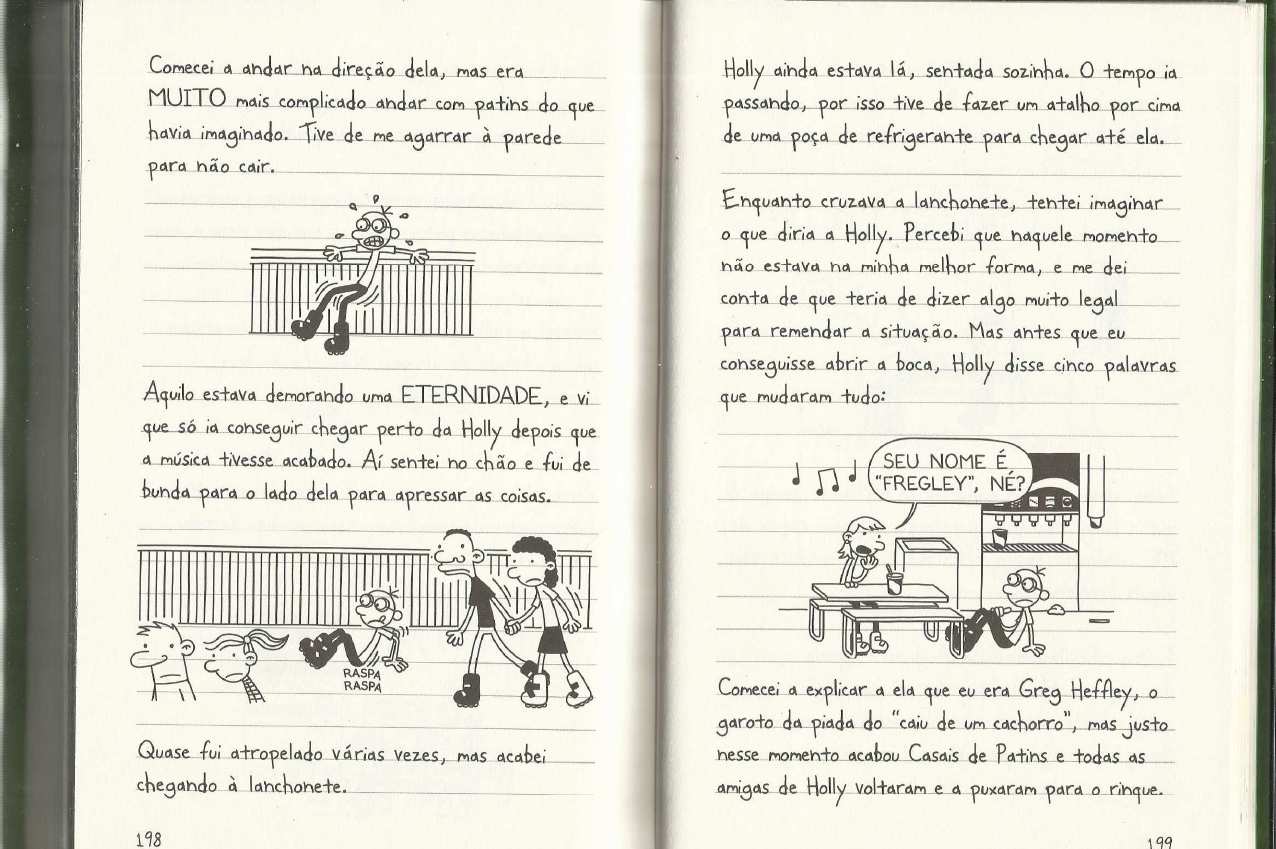 Comecei a andar na direção dela, mas era
MUITO mais complicado andar com patins do que
havia imaginado. Tive de me agarrar à parede
para não cair.
Aquilo estava demorando uma ETERNIDADE, e vi
que só ia conseguir chegar perto da Holly depois que
a música tivesse acabado. Aí sentei no chão e fui de
bunda para o lado dela para apressar as coisas.
RASPA
RASPA
Quase fui atropelado várias vezes, mas acabei
chegando à lanchonete.
198
Holly ainda estava lá, sentada sozinha. O tempo ia
passando, por isso tive de fazer um atalho por cima
de uma poça de refrigerante para chegar até ela.
Enquanto cruzava a lanchonete, tentei imaginar
o que diria a Holly. Percebi que naquele momento
não estava na minha melhor forma, e me dei
conta de que teria de dizer algo muito legal
para remendar a situação. Mas antes que eu
conseguisse abrir a boca, Holly disse cinco palavras
que mudaram tudo:
SEU NOME É
"FREGLEY", NÉ?
Comecei a explicar a ela que eu era Greg Heffley, o
garoto da piada do "caiu de um cachorro", mas justo
nesse momento acabou Casais de Patins e todas as
amigas de Holly voltaram e a puxaram para o rinque.
199